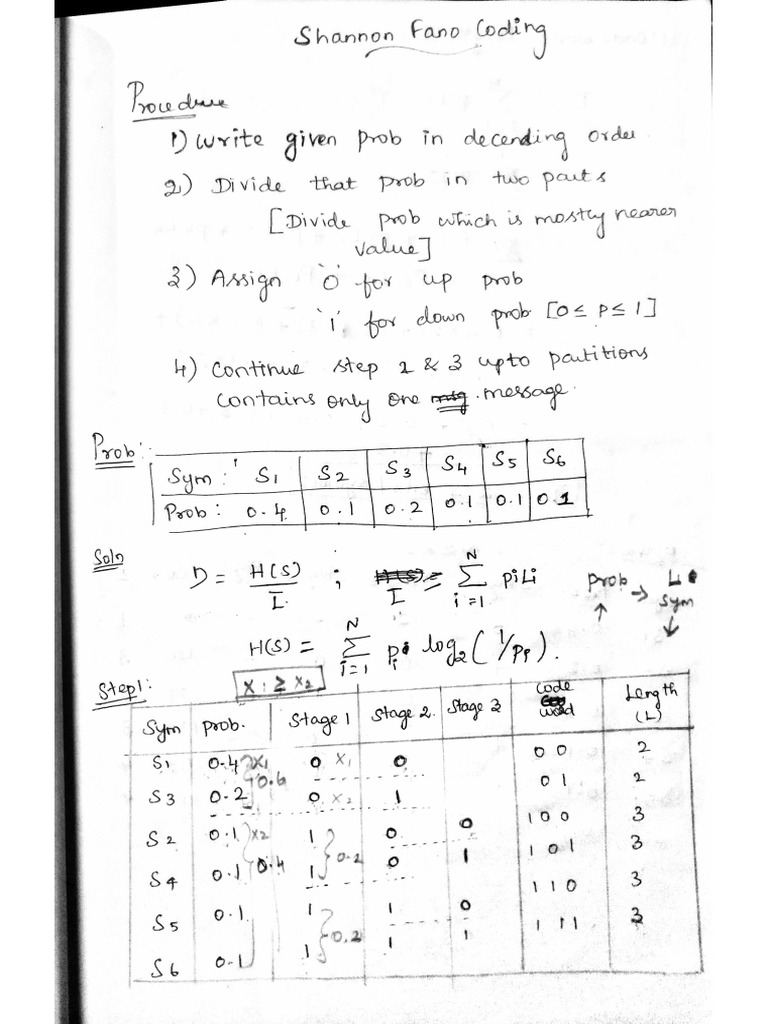 Shannon Fano Coding
Procedure
1) Write given prob in decending order
2) Divide that prob in two parts
[Divide prob which is mostly nearer
value]
3) Assign '0' for up prob
'1' for down prob [0 ≤ P ≤ 1]
4) Continue step 2 & 3 upto partitions
contains only one msg. message.
Prob:-
Sym : S1 S2 S3 S4 S5 S6
Prob : 0.4 0.1 0.2 0.1 0.1 0.1
Soln
η = H(S) / L ; L = N Σ i=1 piLi
prob ↑ → L sym ↓
H(S) = N Σ i=1 Pi log2 (1/Pi).
Step1: X1 ≥ X2
Sym Prob. Stage 1 Stage 2. Stage 3 Code word Length (L)
S1 0.4 X1 0 X1 0 00 2
0.6
S3 0.2 0 X2 1 01 2
S2 0.1 X2 1 0 0 100 3
0.4 0.2
S4 0.1 1 0 1 101 3
S5 0.1 1 1 0 110 3
0.2
S6 0.1 1 1 1 111 3